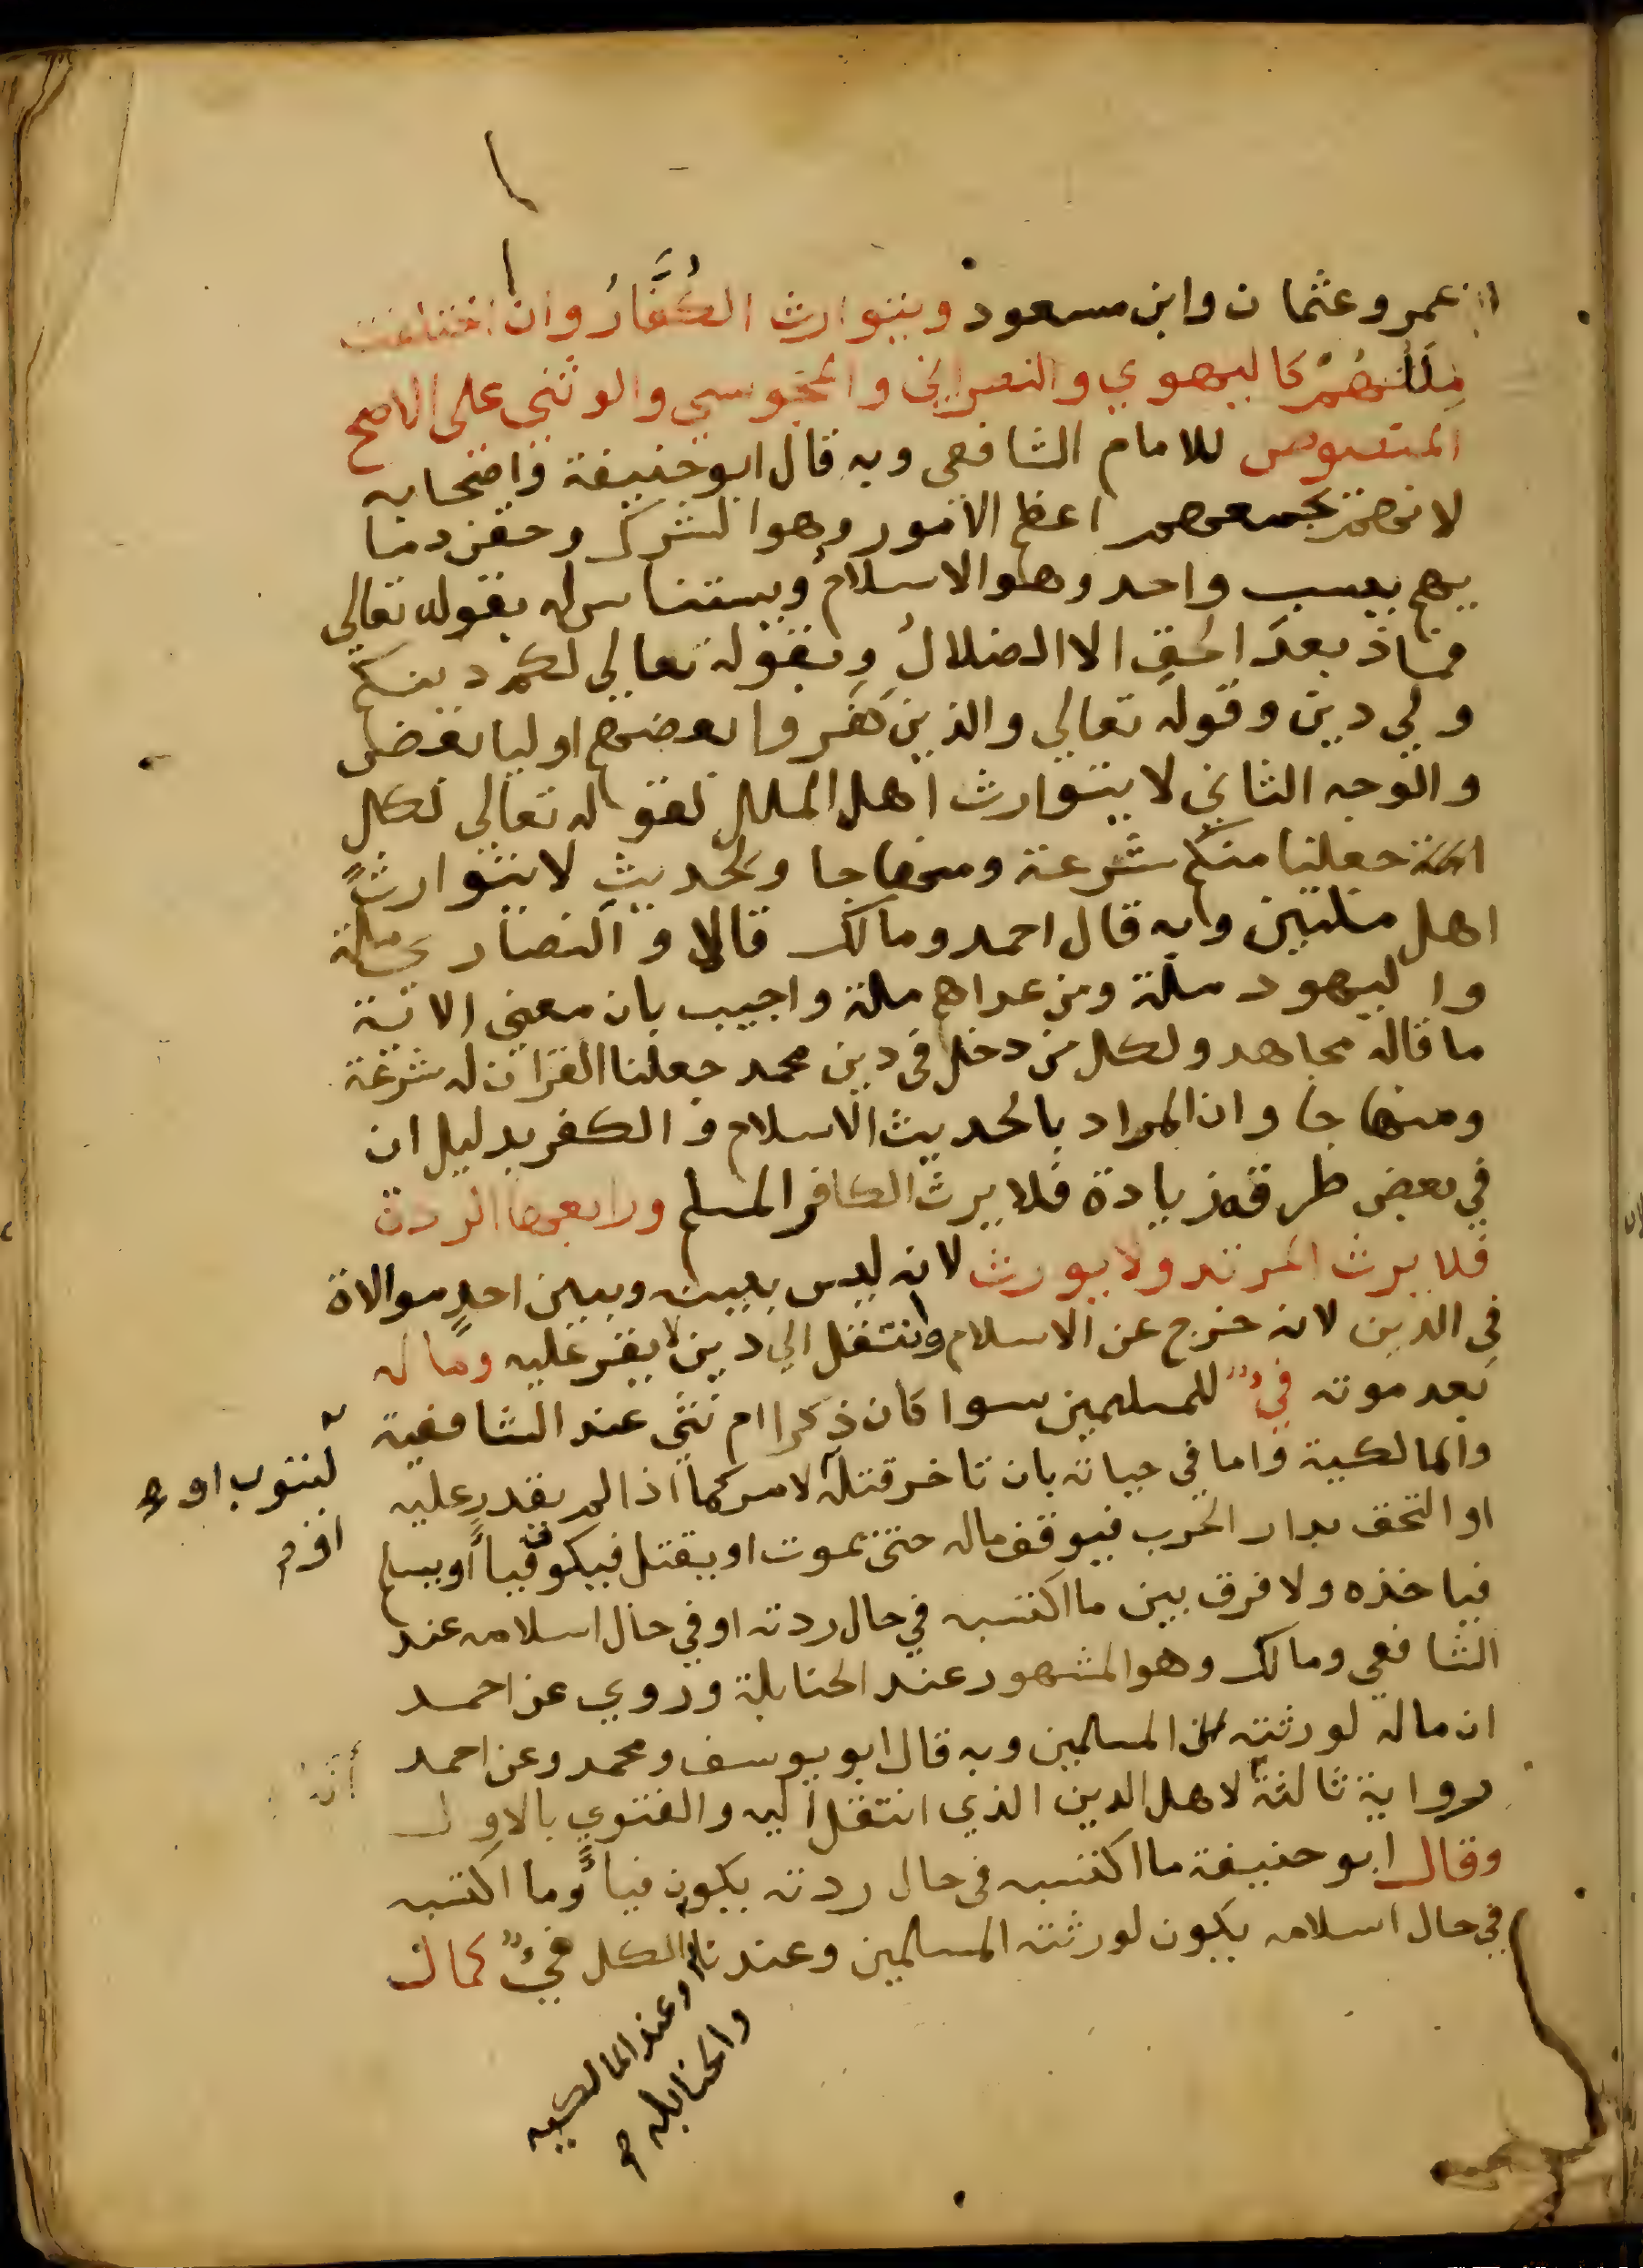 ابن عمر وعثمان وابن مسعود ويتوارث الكُفَّارُ وان اختلفت
مِللُهُمْ كاليهودي والنصراني والمجوسي والوثني علي الاصح
المنصوص للامام الشافعي وبه قال ابو حنيفة واصحابه
لانهم تجمعهم اعظم الامور وهو الشرك وحقن دما
يهم بسبب واحد وهو الاسلام ويستناس له بقوله تعالي
فماذ بعد الحق الا الضلالُ وبقوله تعالي لكم دينكم
ولي دين وقوله تعالي والذين كفروا بعضهم اوليا بعض
والوجه الثاني لا يتوارث اهل الملل لقوله تعالي لكل
جعلنا منكم شرعة ومنهاجا ولحديث لا يتوارث
اهل ملتين وبه قال احمد ومالك قالا والنصاري ملة
واليهود ملة ومن عداهم ملة واجيب بان معني الاية
ما قاله مجاهد ولكل من دخل في دين محمد جعلنا القران له شرعة
ومنهاجا وان المراد بالحديث الاسلام والكفر بدليل ان
في بعض طرقه زيادة فلا يرث الكافر المسلم ورابعها الردة
فلا يرث المرتد ولا يورث لانه ليس بينه وبين احدٍ موالاة
في الدين لانه خرج عن الاسلام وانتقل الي دين لا يقر عليه وماله
بعد موته فيءٌ للمسلمين سوا كان ذكرا ام نثي عند الشافعية
والمالكية واما في حياته بان تاخر قتله لامر كما اذا لم يقدر عليه
او التحق بدار الحرب فيوقف ماله حتي يموت او يقتل فيكون فيأً او يسلم
فياخذه ولا فرق بين ما اكتسبه في حال ردته او في حال اسلامه عند
الشافعي ومالك وهو المشهور عند الحنابلة وروي عن احمد
ان ماله لورثته من المسلمين وبه قال ابو يوسف ومحمد وعن احمد
رواية ثالثة لاهل الدين الذي انتقل اليه والفتوي بالاول
وقال ابو حنيفة ما اكتسبه في حال ردته يكون فيأً وما اكتسبه
في حال اسلامه يكون لورثته المسلمين وعندنا الكل فيءٌ كمال
ليتوب او
أنه
وعند المالكيه
والحنابله صح